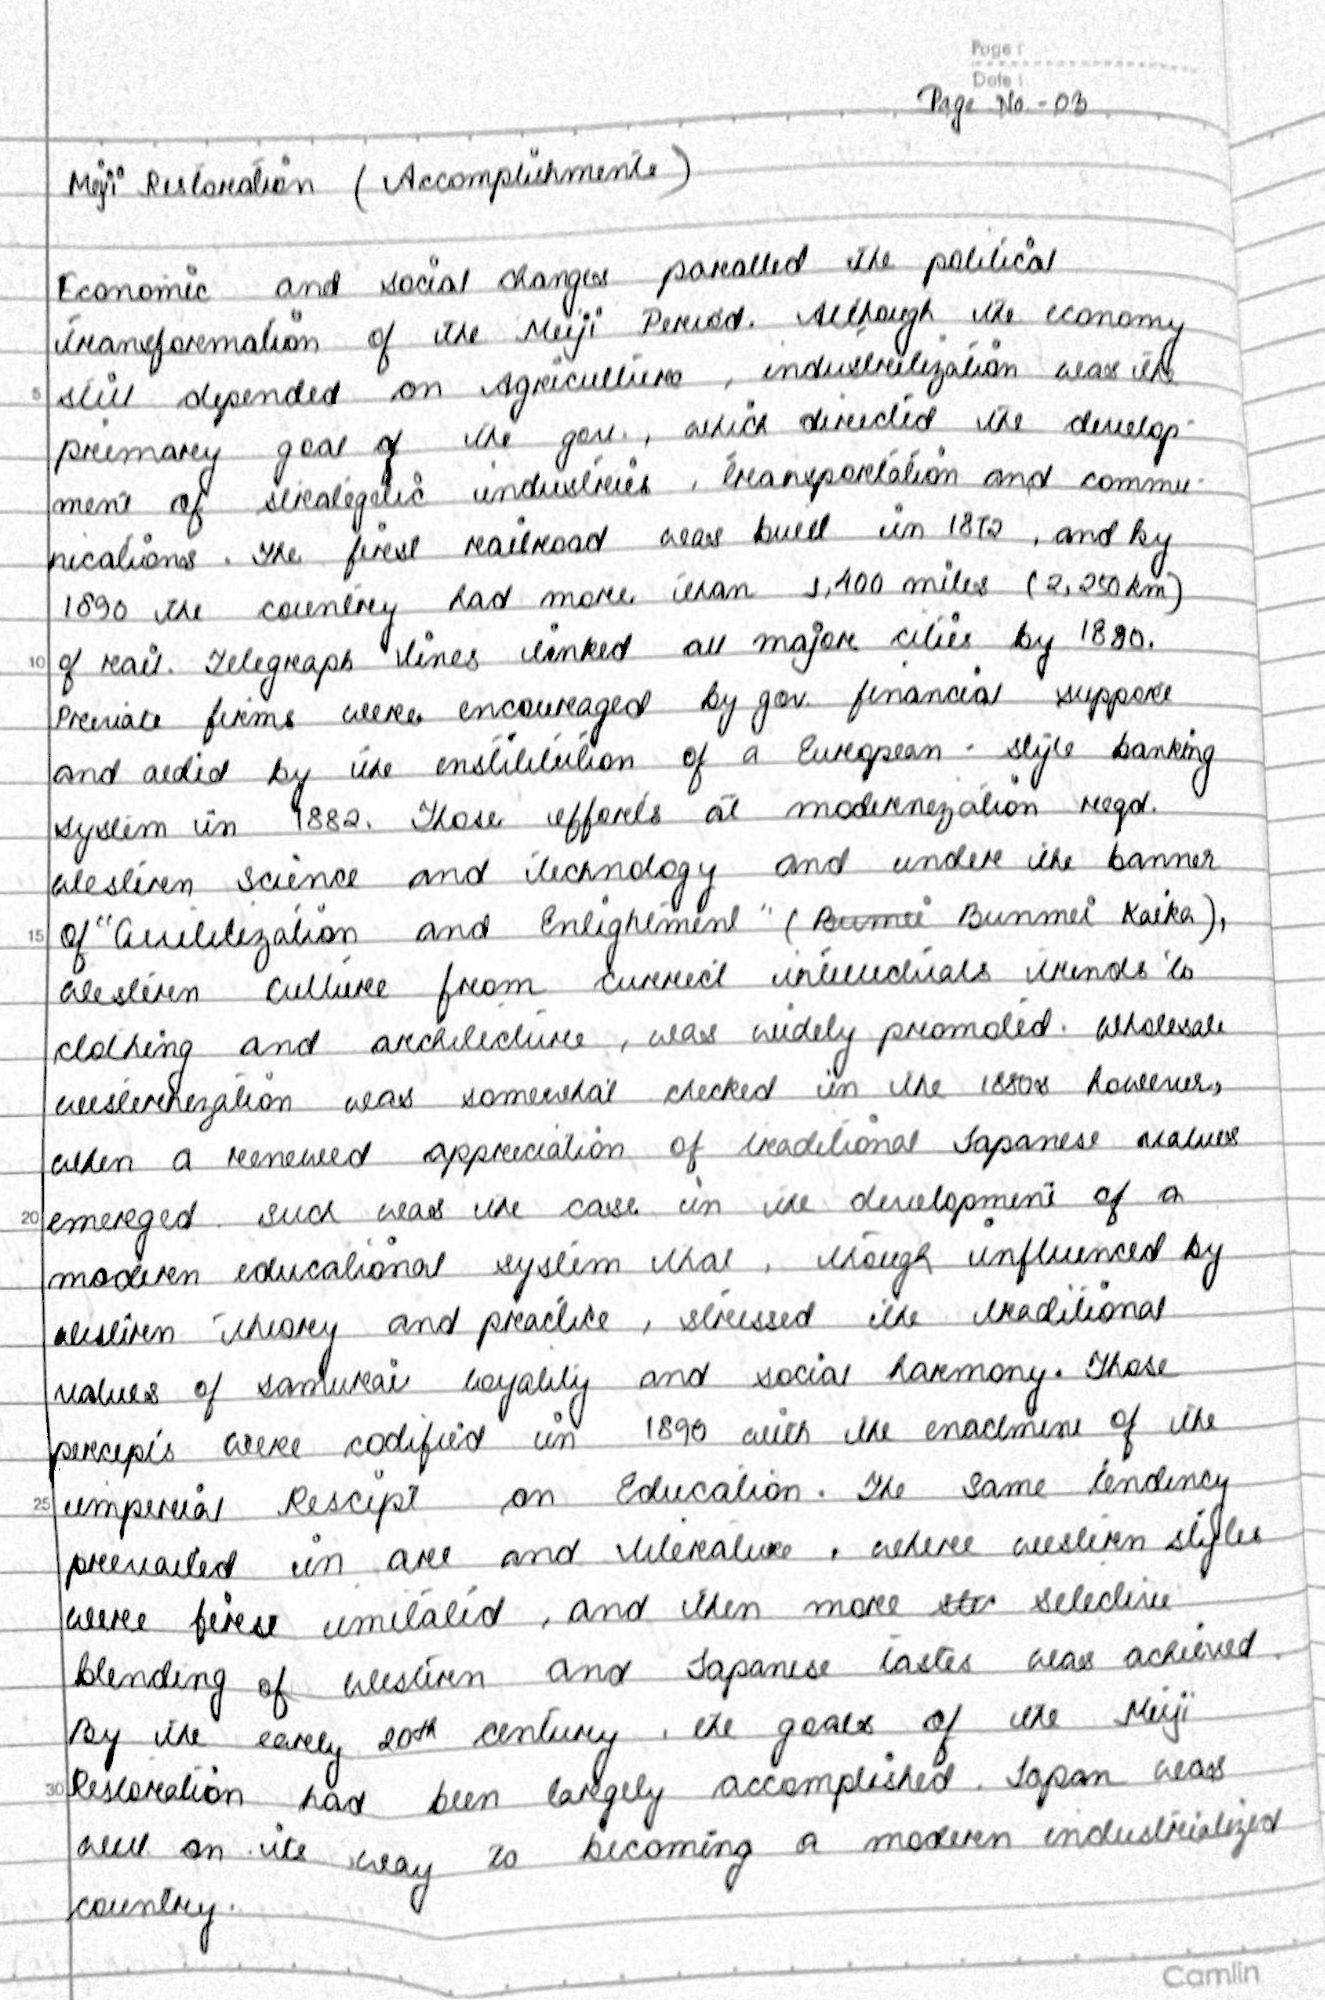 Page :
Date :
Page No. - 03
Meiji Restoration (Accomplishments)
Economic and social changes paralled the political
transformation of the Meiji Period. Although the economy
5 still depended on Agriculture, industrilization was the
primary goal of the gov., which directed the develop-
ment of strategetic industries, transportation and commu-
nications. The first railroad was built in 1872, and by
1890 the country had more than 1,400 miles (2,250 km)
10 of rail. Telegraph lines linked all major cities by 1880.
Private firms were encouraged by gov. financial support
and aedid by the enstitution of a European - style banking
system in 1882. Those efforts at modernezation reqd.
Western science and technology and under the banner
15 of "Civilization and Enlightment" (Bumei Bunmei Kaika),
western culture from currect intellectuals trends to
clothing and architecture, was widely promoted. Wholesale
westernezation was somewhat checked in the 1880s however,
when a renewed appreciation of traditional Japanese values
20 emerged. Such was the case in the development of a
modern educational system that, though influenced by
western theory and practice, stressed the traditional
values of samurai loyality and social harmony. Those
percepts were codified in 1890 with the enactment of the
25 imperial Rescipt on Education. The same tendency
prevailed in art and literature, where western styles
were first imitated, and then more selective
blending of western and Japanese tastes was achieved.
By the early 20th century, the goals of the Meiji
30 Restoration had been largely accomplished. Japan was
well on its way to becoming a modern industrialized
country.
Camlin